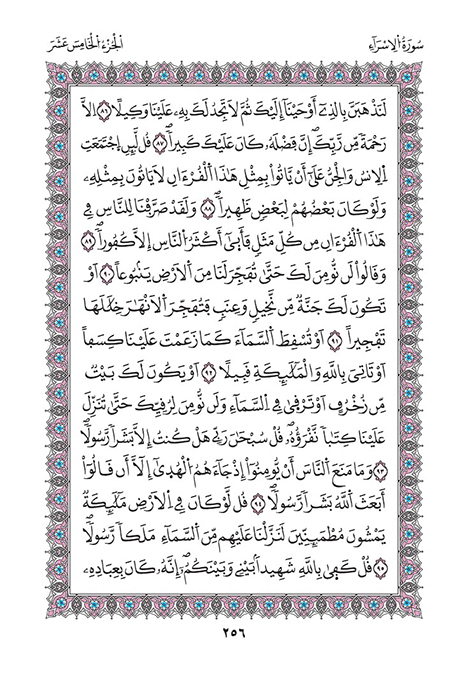 سُورَةُ الِاسْرَاءِ
اَلْجُزْءُ الْخَامِسَ عَشَرَ
لَنَذْهَبَنَّ بِالذِے أَوْحَيْنَآ إِلَيْكَ ثُمَّ لَا تَجِدُ لَكَ بِهِۦ عَلَيْنَا وَكِيلًا ٨٦ اِلَّا
رَحْمَةً مِّن رَّبِّكَۖ إِنَّ فَضْلَهُۥ كَانَ عَلَيْكَ كَبِيراً ٨٧ قُل لَّئِنِ اِجْتَمَعَتِ
اِلِانسُ وَالْجِنُّ عَلَىٰٓ أَنْ يَّاتُواْ بِمِثْلِ هَٰذَا اَلْقُرْءَانِ لَا يَاتُونَ بِمِثْلِهِۦ
وَلَوْ كَانَ بَعْضُهُمْ لِبَعْضٖ ظَهِيراً ٨٨ وَلَقَدْ صَرَّفْنَا لِلنَّاسِ فِے
هَٰذَا اَلْقُرْءَانِ مِن كُلِّ مَثَلٖ فَأَبَىٰٓ أَكْثَرُ النَّاسِ إِلَّا كُفُوراً ٨٩
وَقَالُواْ لَن نُّومِنَ لَكَ حَتَّىٰ تُفَجِّرَ لَنَا مِنَ اَلَارْضِ يَنۢبُوعاً ٩٠ اَوْ
تَكُونَ لَكَ جَنَّةٌ مِّن نَّخِيلٖ وَعِنَبٖ فَتُفَجِّرَ اَلَانْهَٰرَ خِلَٰلَهَا
تَفْجِيراً ٩١ اَوْ تُسْقِطَ اَلسَّمَآءَ كَمَا زَعَمْتَ عَلَيْنَا كِسَفاً
اَوْ تَاتِيَ بِاللَّهِ وَالْمَلَٰٓئِكَةِ قَبِيلًا ٩٢ اَوْ يَكُونَ لَكَ بَيْتٌ
مِّن زُخْرُفٍ اَوْ تَرْقَىٰ فِے اِلسَّمَآءِ وَلَن نُّومِنَ لِرُقِيِّكَ حَتَّىٰ تُنَزِّلَ
عَلَيْنَا كِتَٰباً نَّقْرَؤُهُۥۖ قُلْ سُبْحَٰنَ رَبِّے هَلْ كُنتُ إِلَّا بَشَراً رَّسُولًا
٩٣ وَمَا مَنَعَ اَلنَّاسَ أَنْ يُّومِنُوٓاْ إِذْ جَآءَهُمُ الْهُدَىٰٓ إِلَّآ أَن قَالُوٓاْ
أَبَعَثَ اَللَّهُ بَشَراً رَّسُولًا ٩٤ قُل لَّوْ كَانَ فِے اِلَارْضِ مَلَٰٓئِكَةٌ
يَمْشُونَ مُطْمَئِنِّينَ لَنَزَّلْنَا عَلَيْهِم مِّنَ اَلسَّمَآءِ مَلَكاً رَّسُولًا
٩٥ قُلْ كَفَىٰ بِاللَّهِ شَهِيداَۢ بَيْنِے وَبَيْنَكُمُۥٓۖ إِنَّهُۥ كَانَ بِعِبَادِهِۦ
٢٥٦